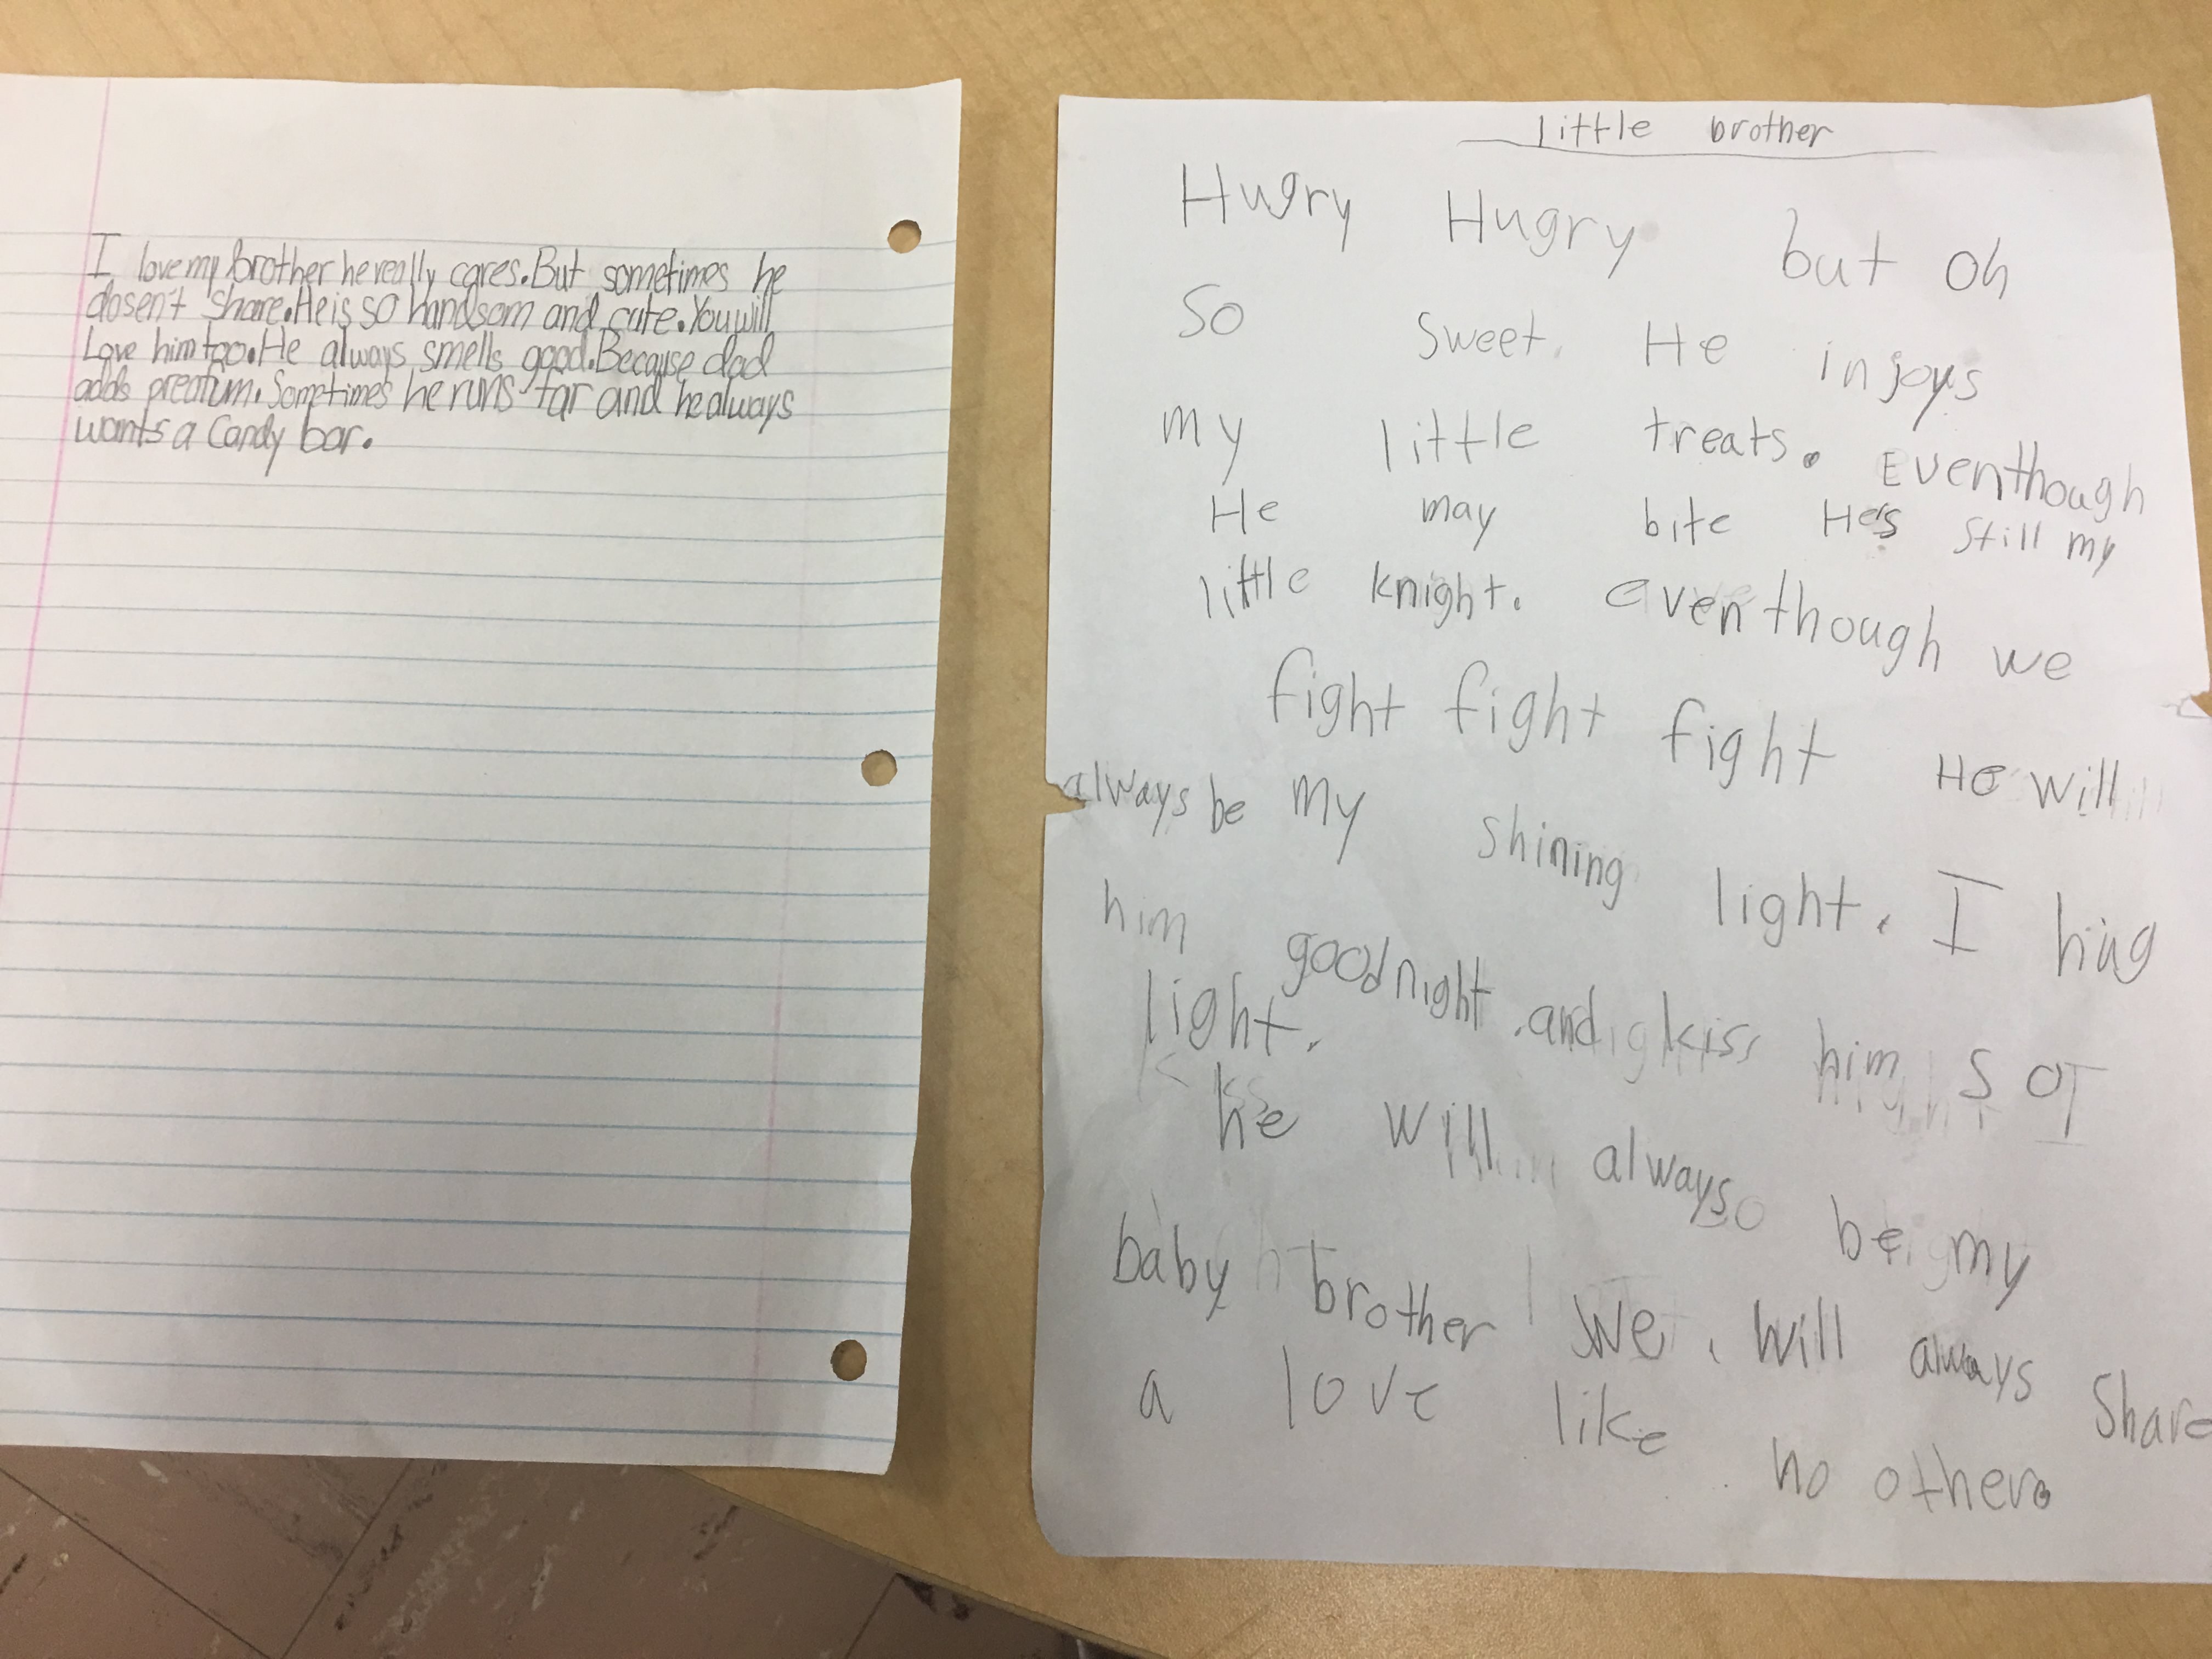 I love my brother he really cares. But sometimes he
dosen't share. He is so handsom and cute. You will
Love him too. He always smells good. Because dad
adds preafum. Sometimes he runs far and he always
wants a Candy bar.
little brother
Hugry Hugry but oh
so sweet. He injoys
my little treats. Eventhough
He may bite He's still my
little knight. eventhough we
fight fight fight He will
always be my shining light. I hug
him goodnight and kiss him so
light.
he will always be my
baby brother we will always share
a love like no other.